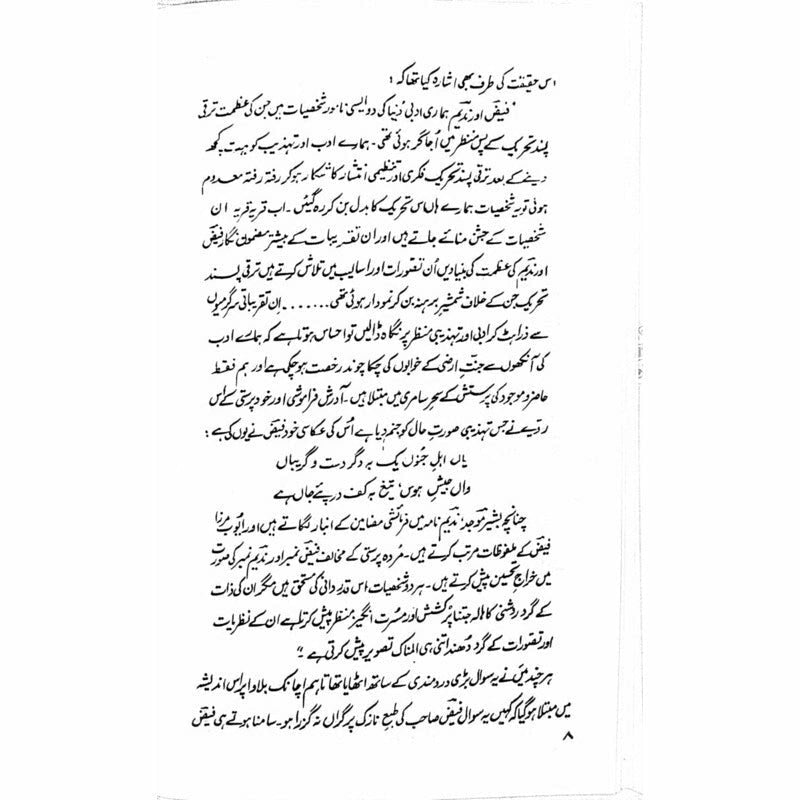 اس حقیقت کی طرف بھی اشارہ کیا تھا کہ :
"فیضؔ اور ندیمؔ ہماری ادبی دُنیا کی دو ایسی نامور شخصیات ہیں جن کی عظمت ترقی
پسند تحریک کے پس منظر میں اُجاگر ہوئی تھی۔ ہمارے ادب اور تہذیب کو بہت کچھ
دینے کے بعد ترقی پسند تحریک فکری اور تنظیمی انتشار کا شکار ہو کر رفتہ رفتہ معدوم
ہوئی تو یہ شخصیات ہمارے ہاں اس تحریک کا بدل بن کر رہ گئیں۔ اب قریہ قریہ ان
شخصیات کے جشن منائے جاتے ہیں اور ان تقریبات کے بیشتر مضمون نگار فیضؔ
اور ندیمؔ کی عظمت کی بنیادیں اُن تصورات اور اسالیب میں تلاش کرتے ہیں ترقی پسند
تحریک جن کے خلاف شمشیر برہنہ بن کر نمودار ہوئی تھی . . . . . . . اِن تقریباتی سرگرمیوں
سے ذرا ہٹ کر ادبی اور تہذیبی منظر پر نگاہ ڈالیں تو احساس ہوتا ہے کہ ہمارے ادب
کی آنکھوں سے جنتِ ارضی کے خوابوں کی چکا چوند رخصت ہو چکی ہے اور ہم فقط
حاضر و موجود کی پرستش کے سحرِ سامری میں مبتلا ہیں۔ آدرش فراموشی اور خود پرستی کے اس
رویّے نے جس تہذیبی صورتِ حال کو جنم دیا ہے اُس کی عکاسی خود فیضؔ نے یوں کی ہے :
یاں اہلِ جُنوں یک بہ دگر دست و گریباں
واں جیشِ ہوس، تیغ بہ کف درپئے جاں ہے
چنانچہ بشیر موجدؔ، ندیم نامہ میں فرمائشی مضامین کے انبار لگاتے ہیں اور ایوب مرزا
فیضؔ کے ملفوظات مرتب کرتے ہیں۔ مُردہ پرستی کے مخالف فیضؔ نمبر اور ندیمؔ نمبر کی صورت
میں خراجِ تحسین پیش کرتے ہیں۔ ہر دو شخصیات اس قدر دانی کی مستحق ہیں مگر ان کی ذات
کے گرد روشنی کا ہالہ جتنا پُرکشش اور مسرت انگیز منظر پیش کرتا ہے ان کے نظریات
اور تصورات کے گرد دُھند اتنی ہی المناک تصویر پیش کرتی ہے۔"
ہر چند میں نے یہ سوال بڑی دردمندی کے ساتھ اٹھایا تھا تاہم اچانک بلاوا پر اس اندیشہ
میں مبتلا ہو گیا کہ کہیں یہ سوال فیضؔ صاحب کی طبعِ نازک پر گراں نہ گزرا ہو۔ سامنا ہوتے ہی فیضؔ
۸